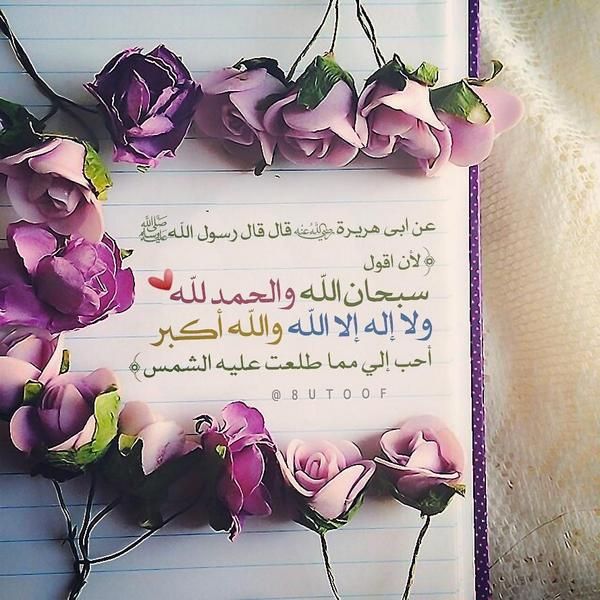 عن ابى هريرة رضي الله عنه قال قال رسول الله ﷺ
﴿لأن اقول
سبحان الله والحمد لله
ولا إله إلا الله والله أكبر
أحب إلي مما طلعت عليه الشمس﴾
@8UTOOF